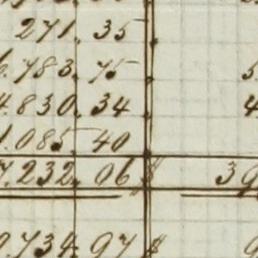 271. 35
6.783. 75 5
4.830. 34 4
1.085. 40
7.232. 06 $ 39
9.734. 97 $